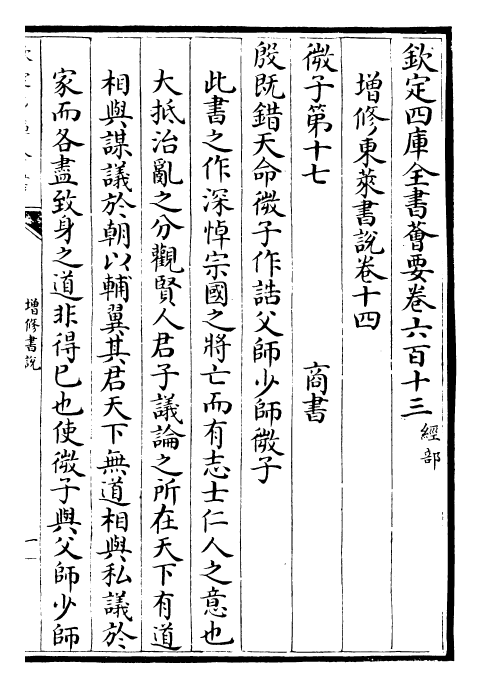 欽定四庫全書薈要卷六百十三 經部
增修東萊書説卷十四
微子第十七 商書
殷既錯天命微子作誥父師少師微子
此書之作深悼宗國之將亡而有志士仁人之意也
大抵治亂之分觀賢人君子議論之所在天下有道
相與謀議於朝以輔翼其君天下無道相與私議於
家而各盡致身之道非得已也使微子與父師少師
增修書説